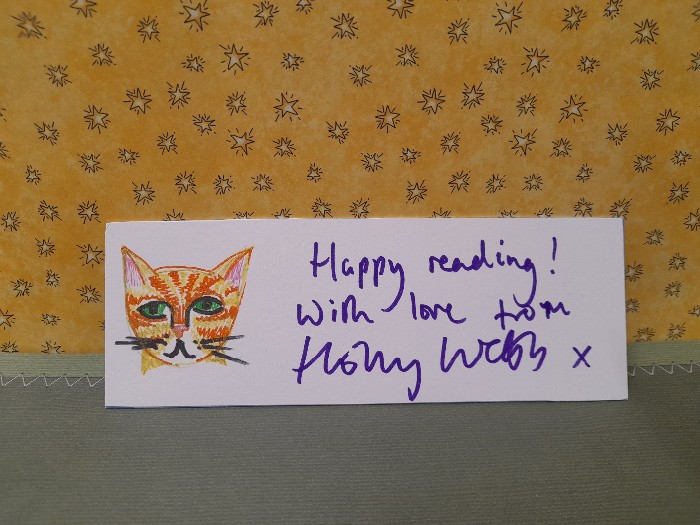 Happy reading!
With love from
Holly Webb x